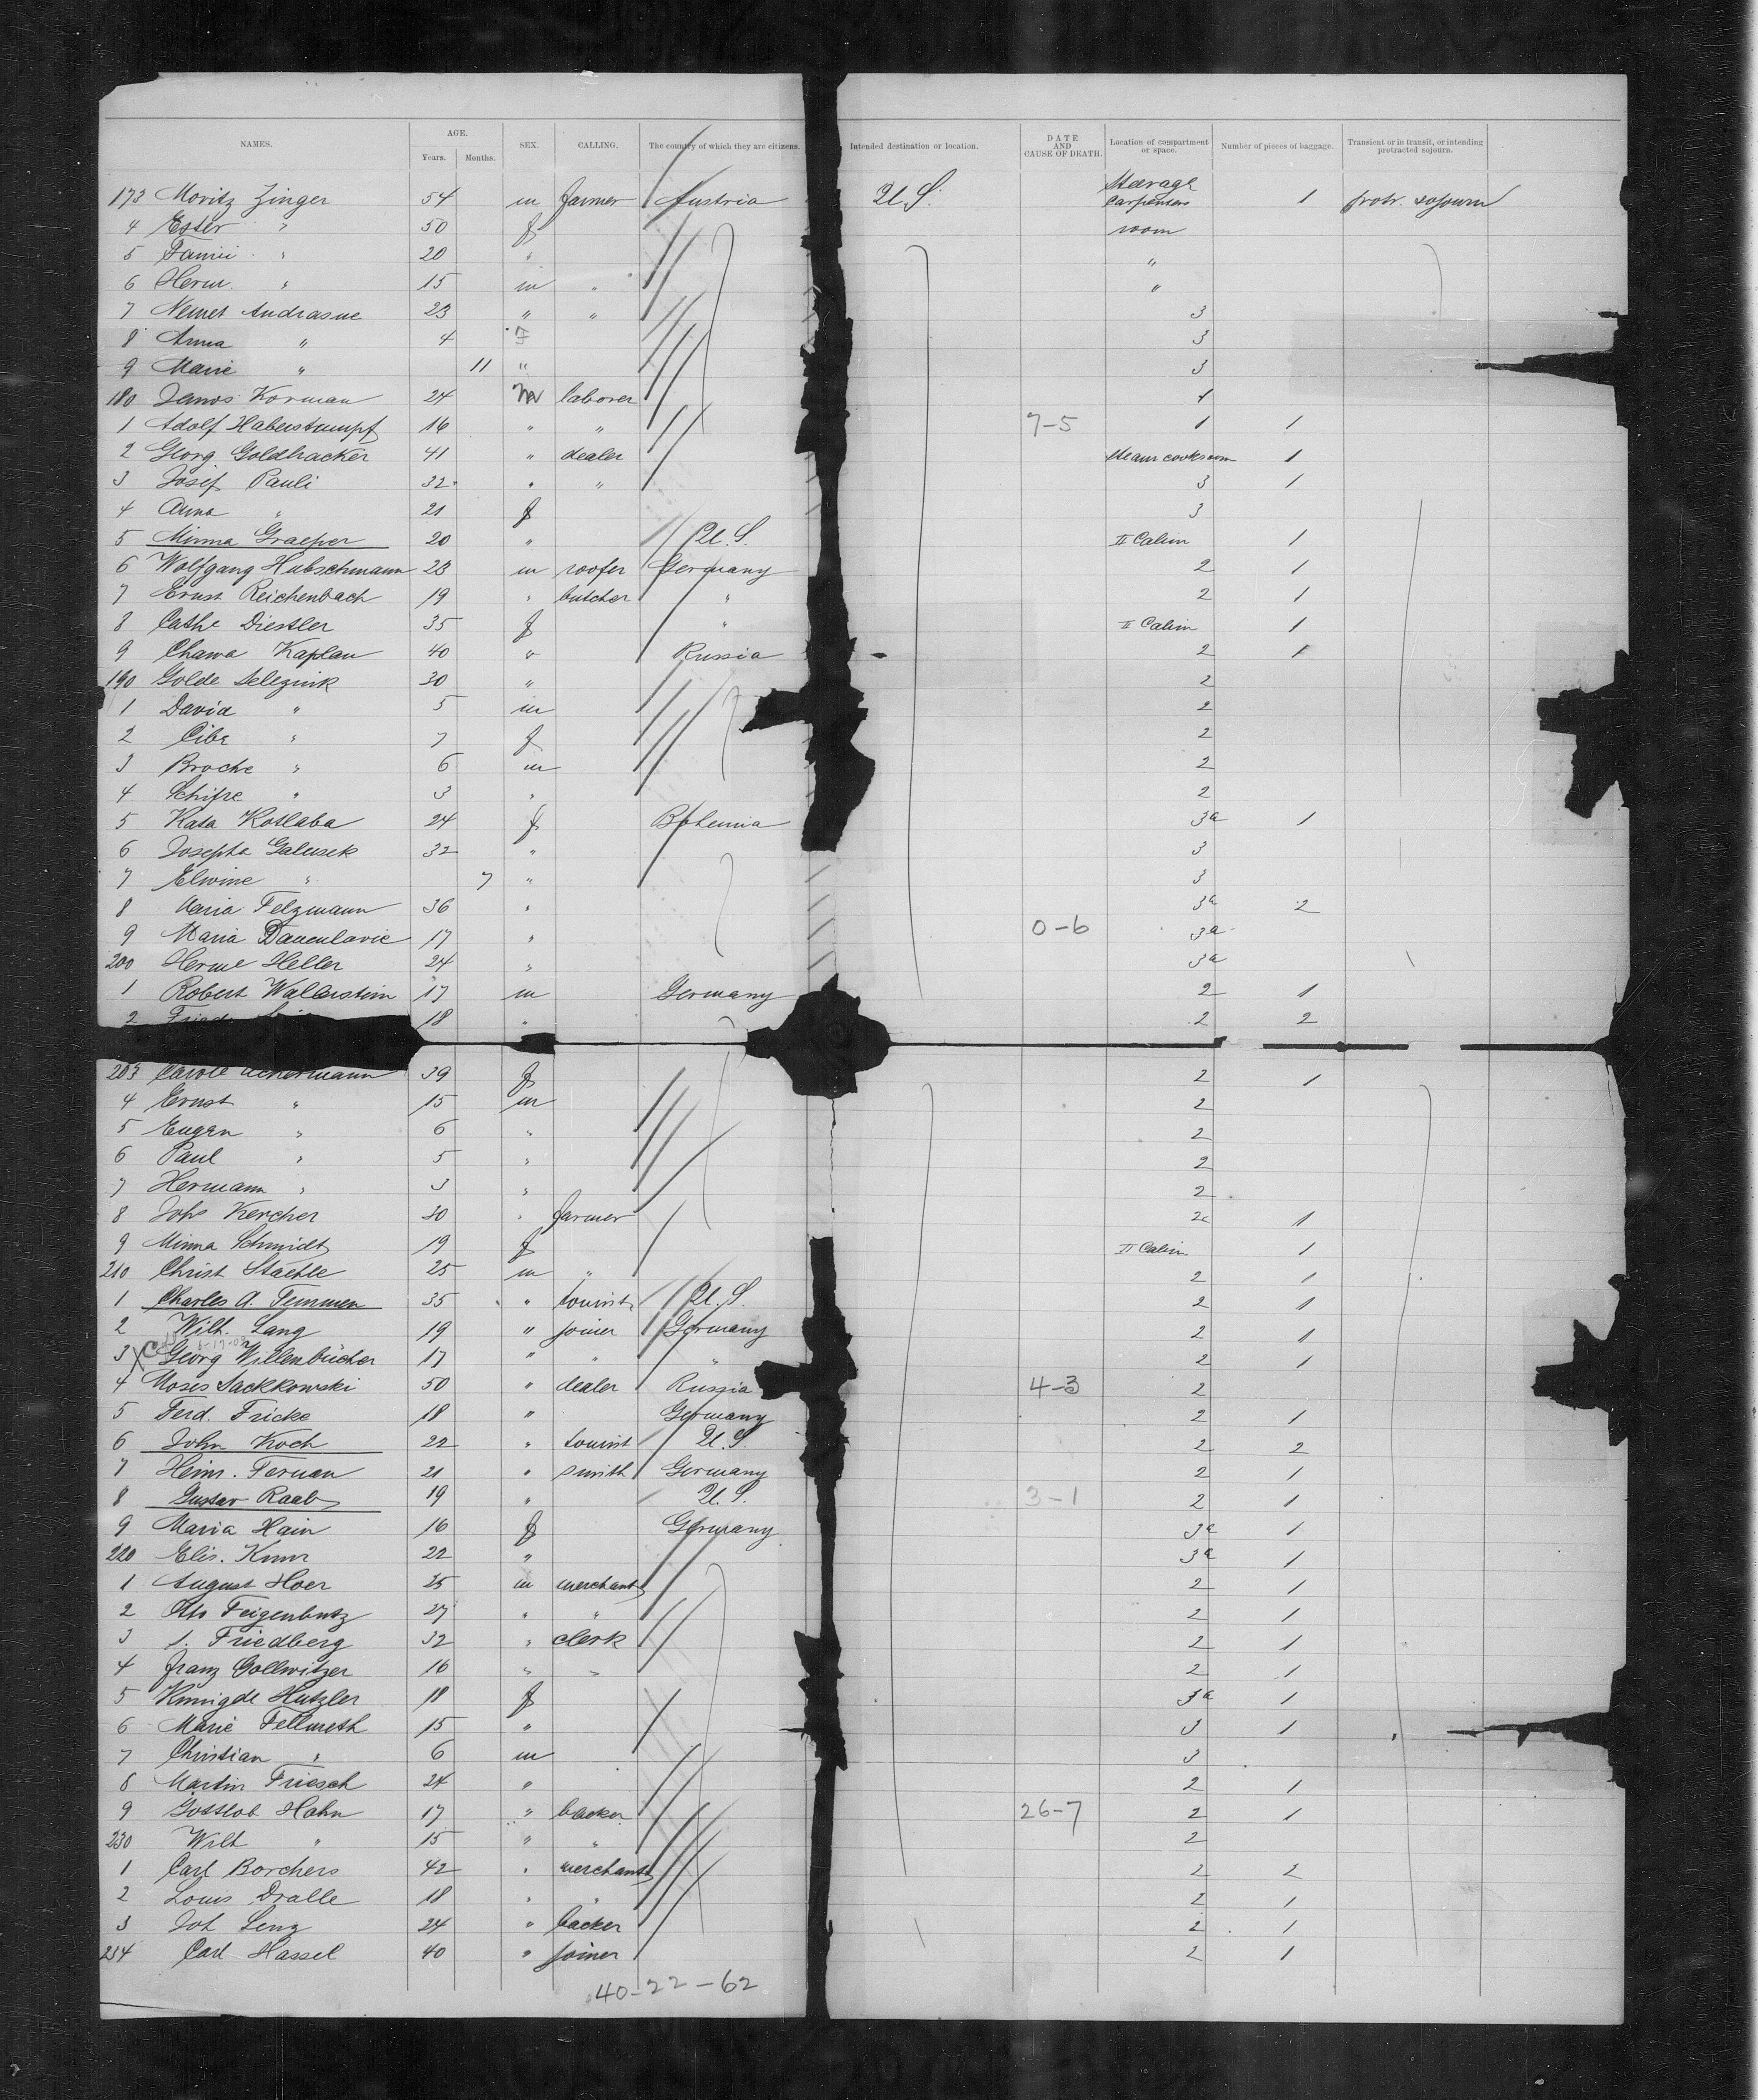 NAMES. AGE. Years. Months. SEX. CALLING. The country of which they are citizens. Intended destination or location. DATE AND CAUSE OF DEATH. Location of compartment or space. Number of pieces of baggage. Transient or in transit, or intending protracted sojourn.
173 Moritz Zinger 54 m farmer Austria U.S. Steerage Carpenters 1 protr. sojourn
4 Ester " 50 f room
5 Fanni " 20 " "
6 Herm. " 15 m " "
7 Nemet Andrasne 23 " " 3
8 Anna " 4 F 3
9 Marie " 11 " 3
180 Janos Korman 24 m laborer 1
1 Adolf Haberstumpf 16 " " 7-5 1 1
2 Georg Goldhacker 41 " dealer steam cooksroom 1
3 Josif Pauli 32 " " 3 1
4 Anna " 21 f 3
5 Minna Graeper 20 " U.S. II Cabin 1
6 Wolfgang Hubschmann 23 m roofer Germany 2 1
7 Ernst Reichenbach 19 " butcher " 2 1
8 Cathe Diestler 35 f " II Cabin 1
9 Chawa Kaplan 40 " Russia 2 1
190 Golde Seleznik 30 " 2
1 David " 5 m 2
2 Cibe " 7 f 2
3 Broche " 6 m 2
4 Schifre " 3 " 2
5 Kata Kotlaba 24 f Bohemia 3a 1
6 Josepha Galusek 32 " 3
7 Elwine " 7 " 3
8 Maria Felzmann 36 " 3a 2
9 Maria Danculavic 17 " 0-6 3a
200 Herme Heller 24 " 3a
1 Robert Wallerstein 17 m Germany 2 1
2 18 " 2 2
203 Carole Ackermann 39 f 2 1
4 Ernst " 15 m 2
5 Eugen " 6 " 2
6 Paul " 5 " 2
7 Hermann " 3 " 2
8 Johs Kercher 30 " farmer 2c 1
9 Minna Schmidt 19 f II Cabin 1
210 Christ Staehle 25 m " 2 1
1 Charles A. Temmen 35 " tourist U.S. 2 1
2 Wilh. Lang 19 " joiner Germany 2 1
3 Georg Willenbücher 17 " " " 2 1
4 Moses Sackkowski 50 " dealer Russia 4-3 2
5 Ferd. Fricke 18 " Germany 2 1
6 John Koch 22 " tourist U.S. 2 2
7 Heinr. Fernan 21 " smith Germany 2 1
8 Gustav Raab 19 " U.S. 3-1 2 1
9 Maria Hain 16 f Germany 3a 1
220 Elis. Knur 22 " 3a 1
1 August Hoer 25 m merchant 2 1
2 Otto Feigenbutz 27 " " 2 1
3 S. Friedberg 32 " clerk 2 1
4 Franz Gollwitzer 16 " " 2 1
5 Kunigde Hutzler 18 f 3a 1
6 Marie Fellmeth 15 " 3 1
7 Christian " 6 m 3
8 Martin Friesch 24 " 2 1
9 Gottlob Hahn 17 " backer 26-7 2 1
230 Wilh " 15 " " 2
1 Carl Borchers 42 " merchant 2 2
2 Louis Dralle 18 " " 2 1
3 Joh Lenz 24 " backer 2 1
234 Carl Hassel 40 " joiner 2 1
40-22-62